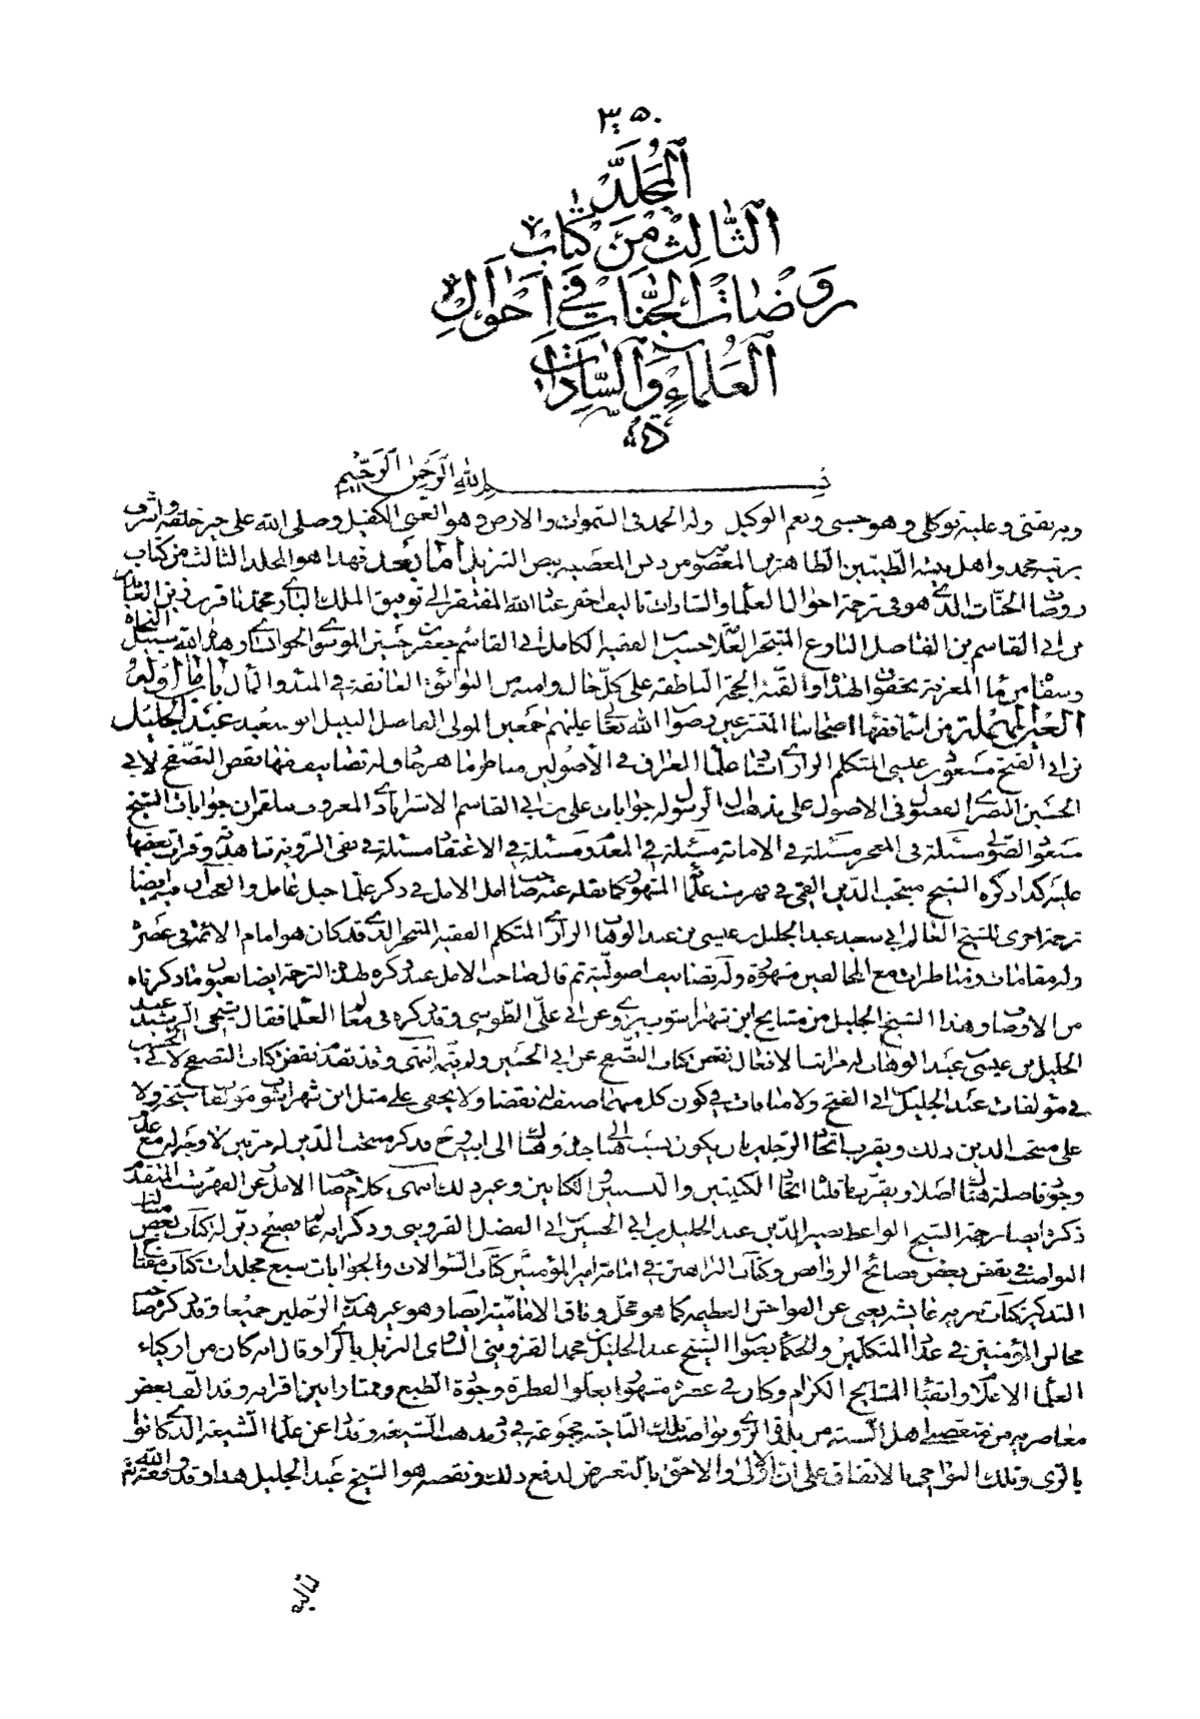 ٣٥٠
المجلد
الثالث من كتاب
روضات الجنات في احوال
العلماء والسادات
بسم الله الرحمن الرحيم
وبه ثقتي وعليه توكلي وهو حسبي ونعم الوكيل وله الحمد في السموات والارض وهو الغني الكفيل وصلى الله على خير خلقه واشرف
بريته محمد واهل بيته الطيبين الطاهرين المعصومين بنص التنزيل اما بعد فهذا هو المجلد الثالث من كتاب
روضات الجنات الذي هو في ترجمة احوال العلماء والسادات تاليف احقر عباد الله المفتقر الى توفيق الملك الباري محمد باقر بن زين العابدين
بن ابي القاسم بن الفاضل البارع المتبحر العلامة حسين الفقيه الكامل ابي القاسم جعفر حسين الموسوي الخوانساري هداه الله سبيل النجاة
على كل حال
باب ما اوله
العين المهملة من اسماء فقهاء اصحابنا المتشرعين رضوان الله تعالى عليهم اجمعين المولى الفاضل النبيل ابو سعيد عبد الجليل
بن ابي الفتح مسعود بن عيسى المتكلم الرازي استاد علماء العراق في الاصولين مناظر ماهر حاذق له تصانيف منها نقض التصفح لابي
الحسين البصري الفصول في الاصول على مذهب آل الرسول جوابات علي بن ابي القاسم الاسترابادي المعروف جوابات الشيخ
مسعود الصوابي مسئلة في المعجز مسئلة في الامامة مسئلة في المعدوم مسئلة في الاعتقاد مسئلة في نفي الرؤية شاهدته وقرات بعضها
عليه كذا ذكره الشيخ منتجب الدين القمي في فهرست علماء كما نقله عنه صاحب امل الامل في ذكر علماء جبل عامل ايضا
ترجمة اخرى للشيخ العالم ابي سعيد عبد الجليل بن عيسى بن عبد الوهاب الرازي المتكلم الفقيه المتبحر الذي قد كان هو امام الائمة في عصره
وله مقامات ومناظرات مع المخالفين مشهورة وله تصانيف اصولية ثم قال صاحب الامل عند ذكره لهذه الترجمة ايضا بعين ما ذكرناه
من الاوصاف وهذا الشيخ الجليل من مشايخ ابن شهراشوب يروي عن ابي علي الطوسي وقد ذكره في معالم العلماء فقال شيخي الرشيد عبد
الجليل بن عيسى بن عبد الوهاب له مراتب الافعال نقض كتاب التصفح عن ابي الحسين ولم يتمه انتهى وقد تقدم نقض كتاب التصفح لابي الحسين
في مؤلفات عبد الجليل بن ابي الفتح ولا منافات في كون كل منهما صنف له نقضا ولا يخفى على مثل ابن شهراشوب مؤلفات شيخه ولا
على منتجب الدين ذلك ويقرب اتحاد الرجلين بان يكون نسب هنا الى جده وهناك الى ابيه وقد ذكر منتجب الدين له مرتين لا وجه له مع عدم
وجود فاصلة هناك اصلا ويقرب ما قلنا اتحاد الكنيتين والنسبتين والكتابين وغير ذلك انتهى كلام صاحب الامل عن الفهرست المتقدم
ذكره ايضا ترجمة الشيخ الواعظ نصير الدين عبد الجليل بن ابي الحسين بن ابي الفضل القزويني وذكر انه عالم فصيح دين له كتاب بعض مثالب
النواصب في نقض بعض فضائح الروافض وكتاب البراهين في امامة امير المؤمنين كتاب السؤالات والجوابات سبع مجلدات كتاب مفتاح
التذكير كتاب تنزيه عايشة يعني عن الفواحش العظيمة كما هو محل وفاق الامامية ايضا وهو غير هذين الرجلين جميعا وقد ذكره صاحب
مجالس المؤمنين في عداد المتكلمين والحكماء بعنوان الشيخ عبد الجليل بن محمد القزويني الساكن النزيل بالري وقال انه كان من اذكياء
العلماء الاعلام واتقياء المشايخ الكرام وكان في عصره مشهورا بعلو الفطرة وجودة الطبع وممتازا بين اقرانه وقد الف بعض
معاصريه من متعصبي اهل السنة من بلاد الري ونواصب تلك الناحية مجموعة في رد مذهب الشيعة وقد اذعن علماء الشيعة الذي كانوا
بالري وتلك النواحي بالاتفاق على ان الاولى والاحق بالتعرض لدفع ذلك ونقضه هو الشيخ عبد الجليل هذا